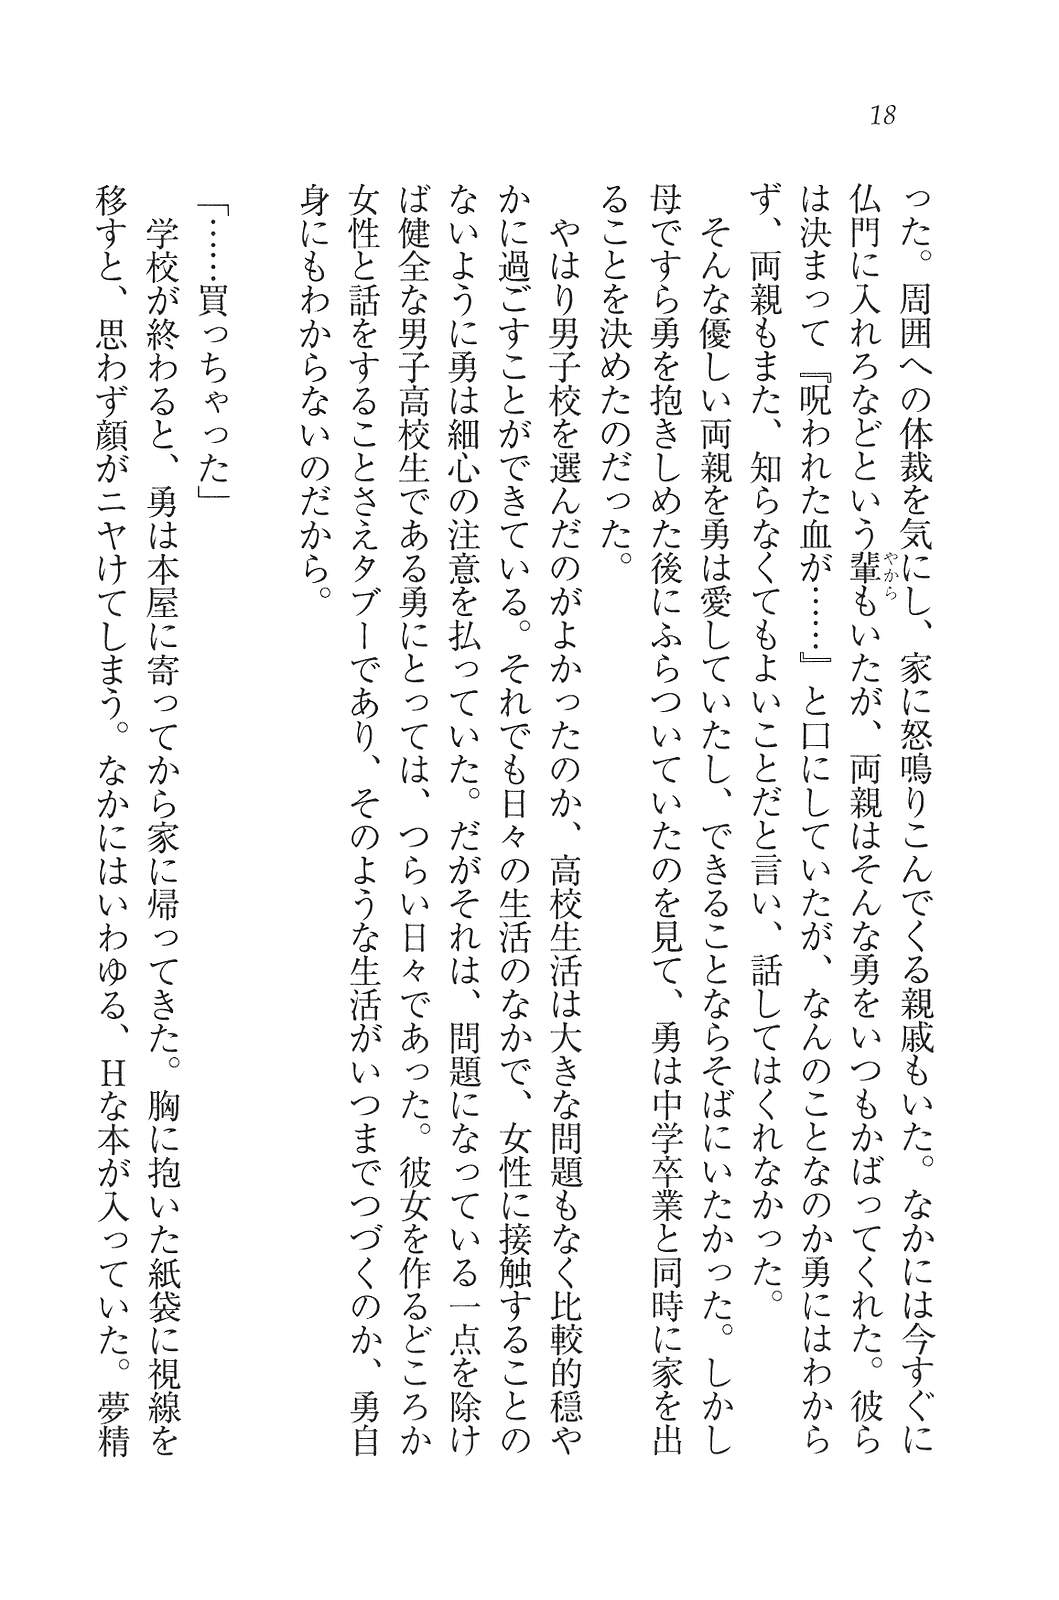 18
った。周囲への体裁を気にし、家に怒鳴りこんでくる親戚もいた。なかには今すぐに
仏門に入れろなどという輩もいたが、両親はそんな勇をいつもかばってくれた。彼ら
やから
は決まって『呪われた血が……』と口にしていたが、なんのことなのか勇にはわから
ず、両親もまた、知らなくてもよいことだと言い、話してはくれなかった。
そんな優しい両親を勇は愛していたし、できることならそばにいたかった。しかし
母ですら勇を抱きしめた後にふらついていたのを見て、勇は中学卒業と同時に家を出
ることを決めたのだった。
やはり男子校を選んだのがよかったのか、高校生活は大きな問題もなく比較的穏や
かに過ごすことができている。それでも日々の生活のなかで、女性に接触することの
ないように勇は細心の注意を払っていた。だがそれは、問題になっている一点を除け
ば健全な男子高校生である勇にとっては、つらい日々であった。彼女を作るどころか
女性と話をすることさえタブーであり、そのような生活がいつまでつづくのか、勇自
身にもわからないのだから。
「……買っちゃった」
学校が終わると、勇は本屋に寄ってから家に帰ってきた。胸に抱いた紙袋に視線を
移すと、思わず顔がニヤけてしまう。なかにはいわゆる、Hな本が入っていた。夢精